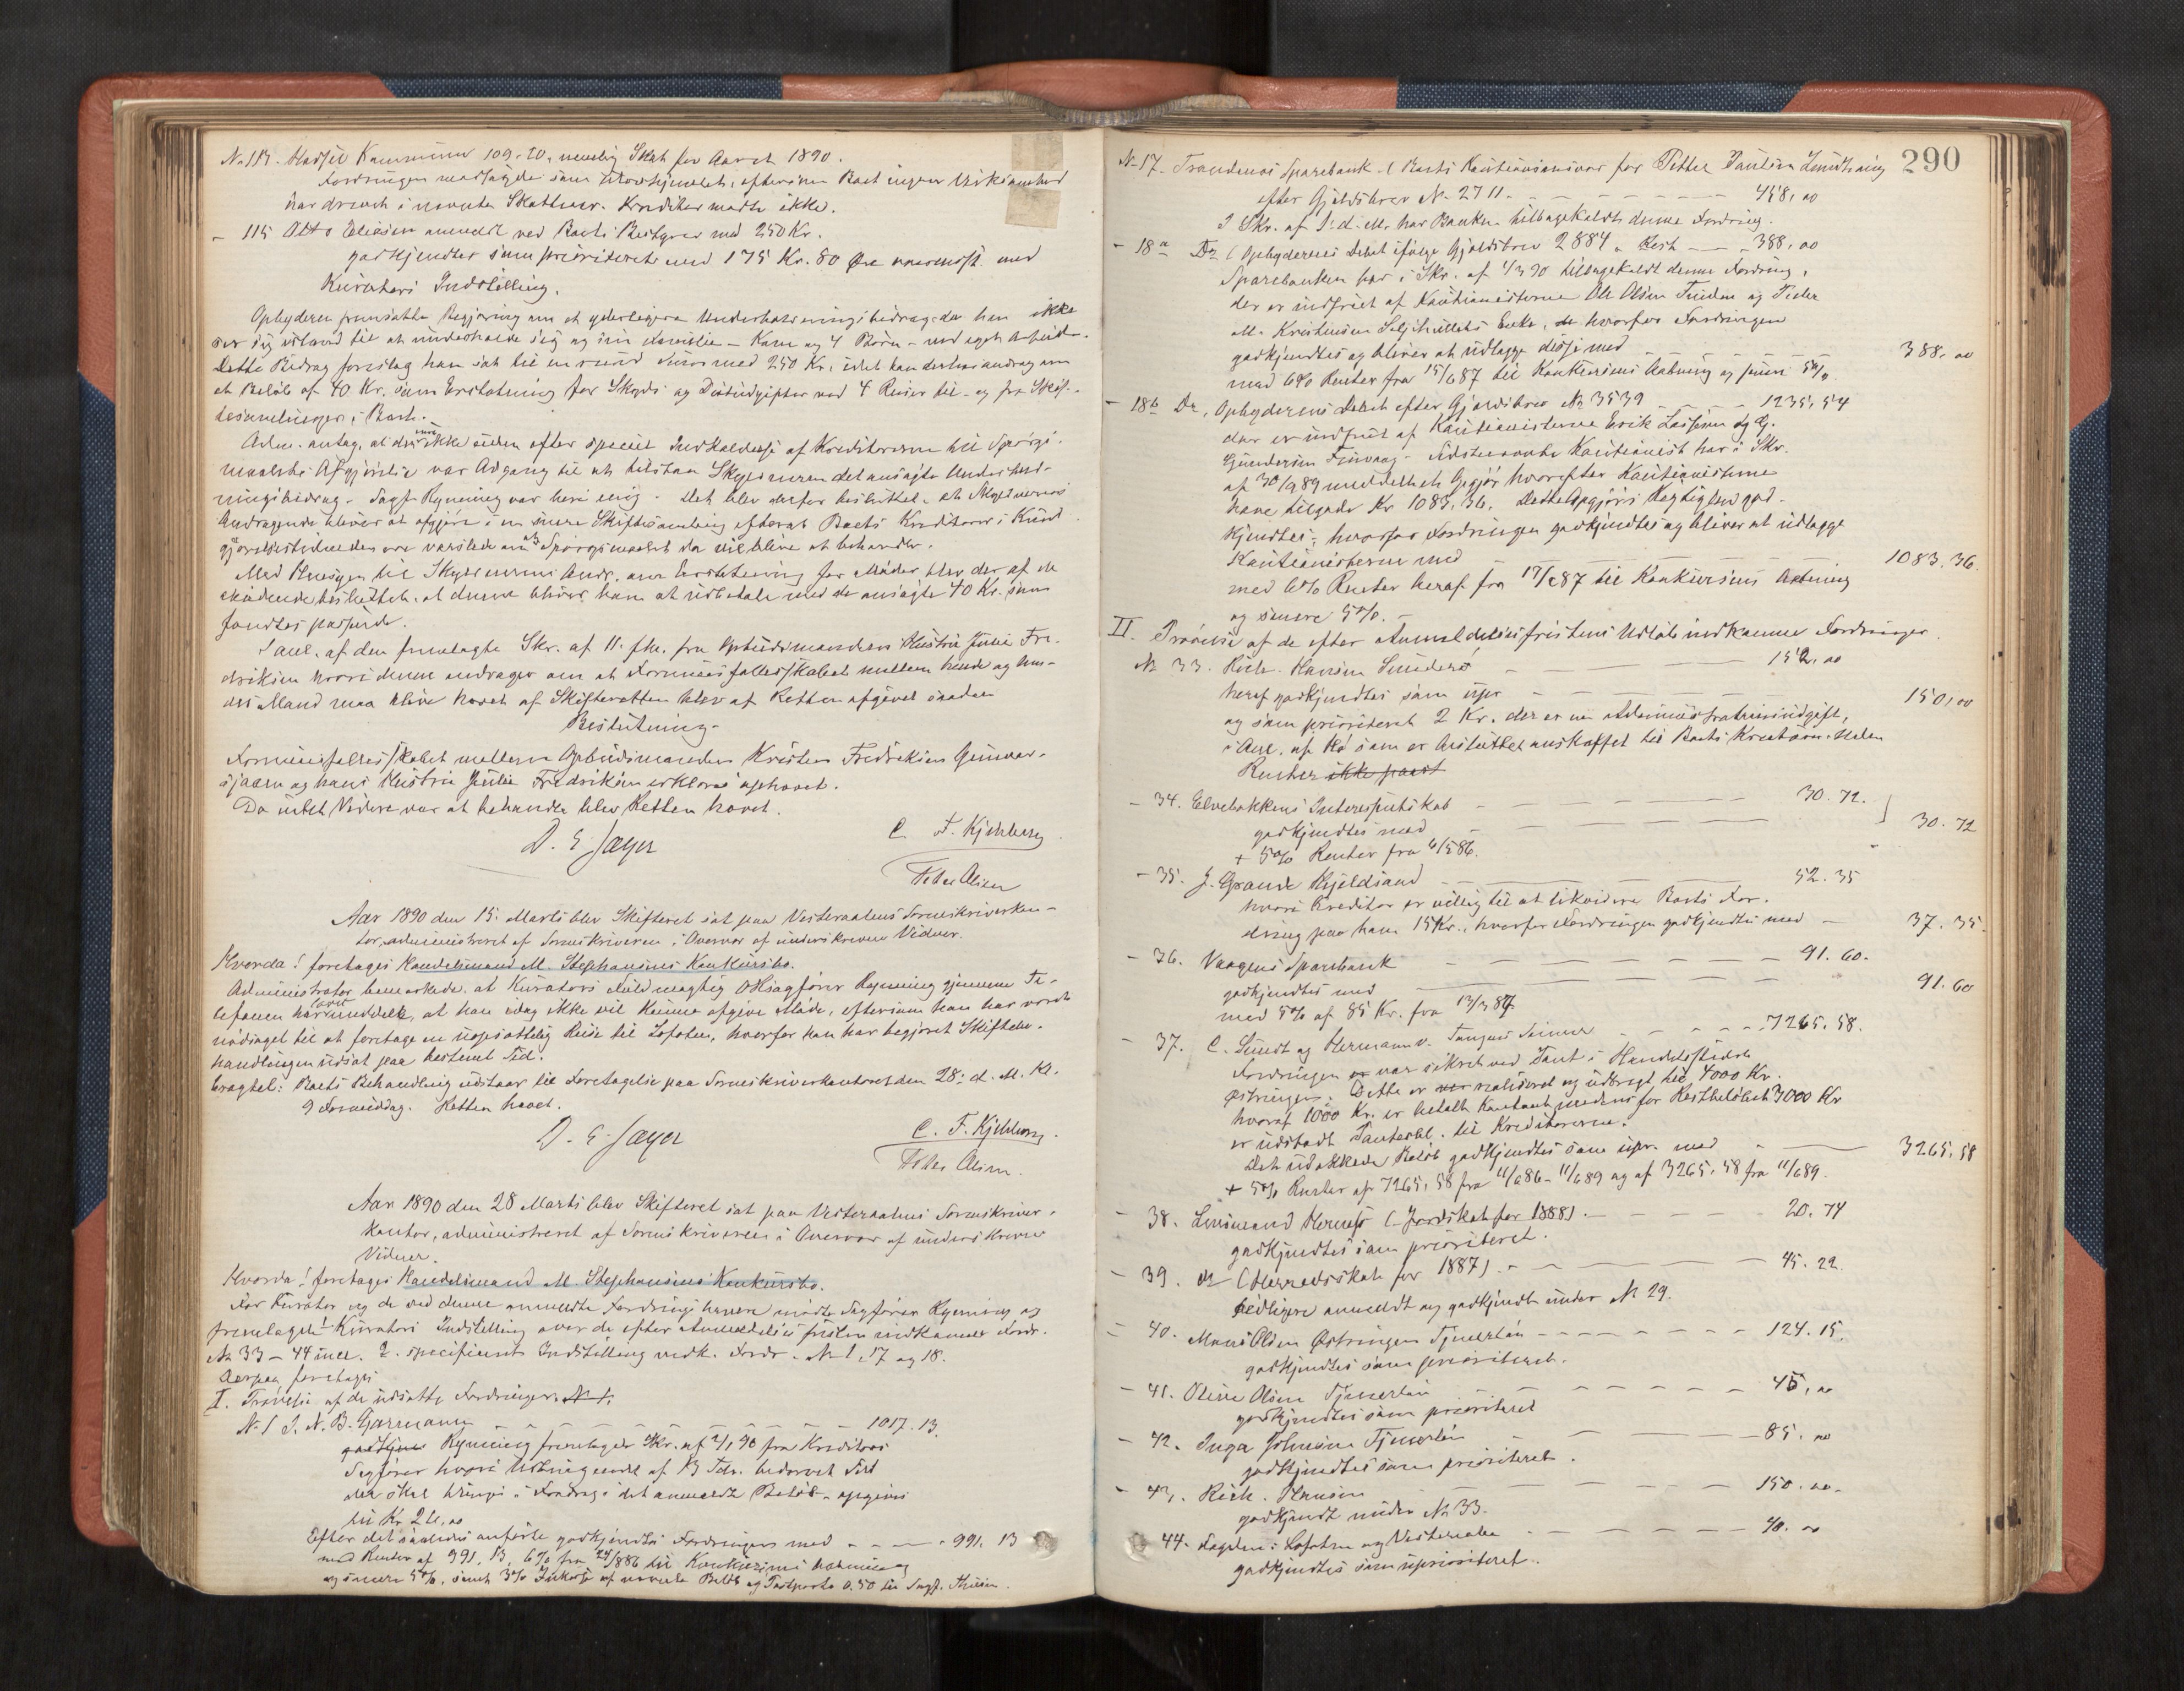 No 114. Hadsel Kommune 109.20, nemlig Skat for Aaret 1890.
Fordringen modsagdes som uvedkjendt, eftersom Boet ingen Virksomhed
har drevet i nævnte Skatteaar. Kreditor mødte ikke.
- 115 Otto Eliasen anmeldt ved Boets Bestyrer med 250 Kr.
godkjendtes som prioriteret med 175 Kr. 80 Øre overensst. med
Kurators Indstilling.
Opbyderen fremsatte Begjæring om et yderligere Underholdningsbidrag, da han ikke
ser sig istand til at underholde sig og sin Familie - Kone og 4 Børn - ved eget Arbeide.
Dette Bidrag foreslog han sat til en rund Sum med 250 Kr., idet han derhos androg om
et Beløb af 40 Kr. som Erstatning for Skyds og Diætudgifter ved 4 Reiser til og fra Skif-
tesamlinger i Boet.
Adm. antog, at der ikke uden efter speciel Indkaldelse af Kreditorerne til Spørgs-
maalets Afgjørelse var Adgang til at tilstaa Skyldneren det ansøgte Underhold-
ningsbidrag. Sagf. Rynning var heri enig. Det blev derfor besluttet, at Skyldnerens
Andragende bliver at afgjøre i en senere Skiftesamling efterat Boets Kreditorer i Kund-
gjørelsestidenden ere varslede om at Spørgsmaalet da vil blive at behandle.
Med Hensyn til Skyldnerens Andr. om Erstatning for Møder blev der af de
mødende besluttet, at denne bliver ham at udbetale med de ansøgte 40 Kr. som
fandtes passende.
I Anl. af den fremlagte Skr. af 11. f.M. fra Opbudsmandens Hustru Julie Fre-
driksen hvori denne andrager om at Formuesfællesskabet mellem hende og hen-
des Mand maa blive hævet af Skifteretten blev af Retten afgivet saadan
Beslutning.
Formuesfællesskabet mellem Opbudsmanden Kristen Fredriksen Gunnar-
sjaaen og hans Hustru Julie Fredriksen erklæres ophævet.
Da intet Videre var at behandle blev Retten hævet.
D. E. Jayer C. F. Kjelsberg
Peder Olsen
Aar 1890 den 15. Marts blev Skifteret sat paa Vesteraalens Sorenskriverkon-
tor, administreret af Sorenskriveren i Overvær af underskrevne Vidner.
Hvorda! foretages Handelsmand M. Stephansens Konkursbo.
Administrator bemærkede, at Kurators Fuldmægtig Overretssagfører Rynning gjennem Te-
lefonen har meddelt, at han idag ikke vil kunne afgive Møde, eftersom han har været
nødsaget til at foretage en uopsættelig Reise til Lofoten, hvorfor han har begjæret Skiftebe-
handlingen udsat paa bestemt Tid.
Eragtet: Boets Behandling udstaar til Foretagelse paa Sorenskriverkontoret den 28. d. M. Kl.
9 Formiddag. Retten hævet.
D. E. Jayer C. F. Kjelsberg
Peder Olsen.
Aar 1890 den 28 Marts blev Skifteret sat paa Vesteraalens Sorenskriver-
kontor, administreret af Sorenskriveren i Overvær af underskrevne
Vidner.
Hvorda! foretages Handelsmand M. Stephansens Konkursbo.
For Kurator og de ved denne anmeldte Fordringshavere mødte Sagfører Rynning og
fremlagde 1. Kurators Indstilling over de efter Anmeldelsesfristen indkomne Fordr.
No 33 - 44 incl. 2. specificeret Indstilling vedk. Fordr. No 1, 17 og 18.
Derpaa foretages
I. Prøvelse af de udsatte Fordringer. No 1.
No 1 I. N. B. Garmann 1017.13.
godkjend Rynning fremlagde Skr. af 2/1 90 fra Kreditors
Sagfører
Efter det saaledes anførte godkjendtes Fordringen med 991.13
med Renter af 991.13, 6% fra 24/8 86 til Konkursens Aabning
og senere 5%, samt 3% Inkasso af nævnte Beløb og Postporto 0.50 til Sagf. Thiis.
290
No 17. Trondenæs Sparebank (Boets Kautionsansvar for Petter Paulsen
efter Gjældsbrev No 2711. 458,00
I Skr. af 1. d. M. har Banken tilbagekaldt denne Fordring.
- 18a Do (Opbyderens Debet ifølge Gjældsbrev 2884, Rest 388,00
Sparebanken har i Skr. af 1/3 90 tilbagekaldt denne Fordring,
der er indfriet af Kautionisterne Ole Olsen og Peder
M. Kristensen Enke, de hvorfor Fordringen
godkjendtes og bliver at udlægge disse med 388,00
med 6% Renter fra 15/6 87 til Konkursens Aabning og senere 5%.
- 18b Do, Opbyderens Debet efter Gjældsbrev No 3539 1235,54
der er indfriet af Kautionisterne Erik Lassesen og G.
Gundersen Finvaag. Sidstnævnte Kautionist har i Skr.
af 30/9 89 meddelt et Opgjør hvorefter Kautionisterne
have tilgode Kr 1083,36. Dette Opgjørs Rigtighed god-
kjendtes, hvorfor Fordringen godkjendtes og bliver at udlægge
Kautionisterne med 1083.36.
med 6% Renter heraf fra 17/6 87 til Konkursens Aabning
og senere 5%.
II. Prøvelse af de efter Anmeldelsesfristens Udløb indkomne Fordringer.
No 33. Rich. Hansen 152,00
heraf godkjendtes som upr. 150,00
og som prioriteret 2 Kr. der er en Administrationsudgift,
i Anl. af Hø som er besluttet anskaffet til Boets Kreaturer. Uden
Renter ikke paast
- 34. Elvebakkens Interessentskab 30.72.
godkjendtes med 30.72
+ 5% Renter fra 6/5 86.
- 35. J. Grande Hjeldsand 52.35
hvori Kreditor er villig til at likvidere Boets For-
dring paa ham 15 Kr., hvorfor Fordringen godkjendtes med 37.35.
- 36. Vaagens Sparebank 91.60.
godkjendtes med 91.60
med 5% af 85 Kr. fra 13/3 87.
- 37. C. Sundt og Hermann v. Tangens Sønner 7265.58.
Fordringen er var sikret ved Pant i Handelsstedet
Østringen. Dette er nu realiseret og udbragt til 4000 Kr.
hvoraf 1000 Kr. er betalt Kontant medens for Restbeløbet 3000 Kr
er udstedt Panteobl. til Kreditorerne.
Det udækkede Beløb godkjendtes som upr. med 3265,58
+ 5% Renter af 7265,58 fra 11/6 86 - 11/6 89 og af 3265,58 fra 11/6 89.
- 38. Lensmand (Jordskat for 1888) 20.74
godkjendtes som prioriteret.
- 39. do (Herredsskat for 1887) 45.22.
tidligere anmeldt og godkjendt under No 29.
- 40. Mons Olsen Østringen Tjenerløn 124.15.
godkjendtes som prioriteret.
- 41. Oline Olsen Tjenerløn 45,00
godkjendtes som prioriteret
- 42. Inga Johnsen Tjenerløn 85.00
godkjendtes som prioriteret.
- 43. Rich. Hansen 150.00.
godkjendt under No 33.
- 44. Fogden i Lofoten og Vesteraalen 40.00
godkjendtes som uprioriteret.